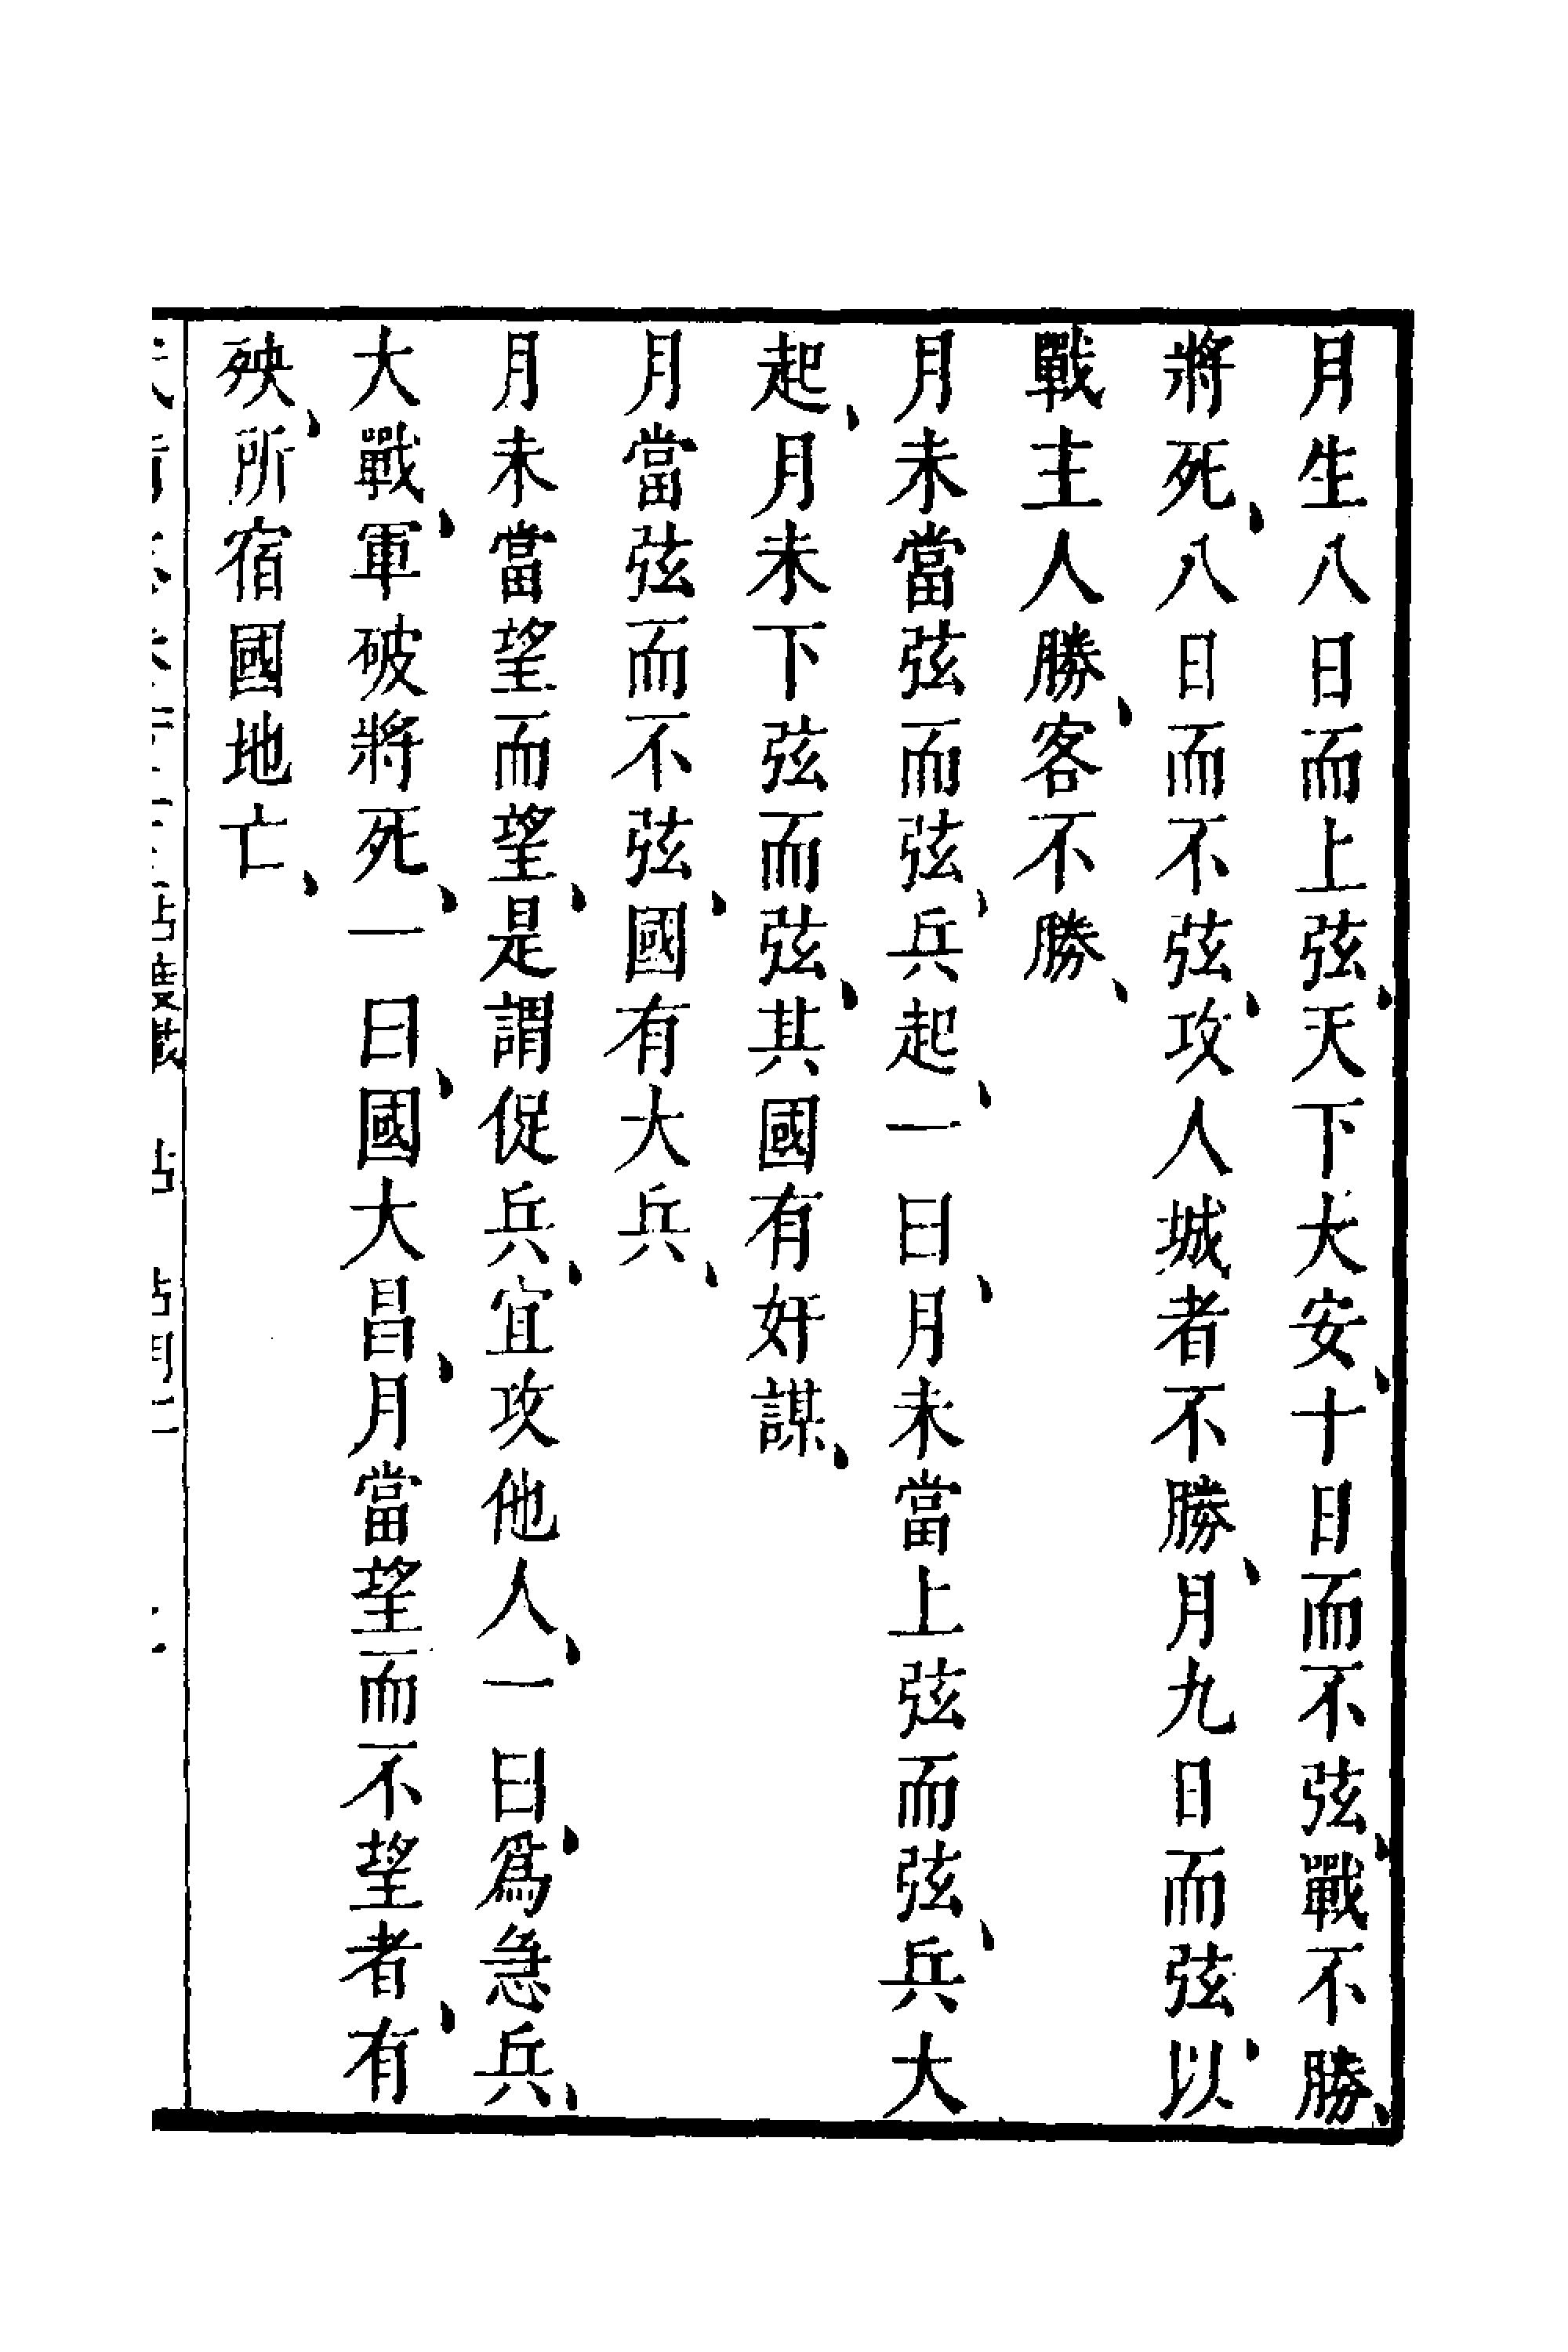 月生八日而上弦、天下大安、十日而不弦、戰不勝、
將死、八日而不弦、攻人城者不勝、月九日而弦、以
戰主人勝、客不勝、
月未當弦而弦、兵起、一曰、月未當上弦而弦、兵大
起、月未下弦而弦、其國有奸謀、
月當弦而不弦、國有大兵、
月未當望而望、是謂促兵、宜攻他人、一曰、爲急兵、
大戰、軍破將死、一曰、國大昌、月當望而不望者、有
殃、所宿國地亡、